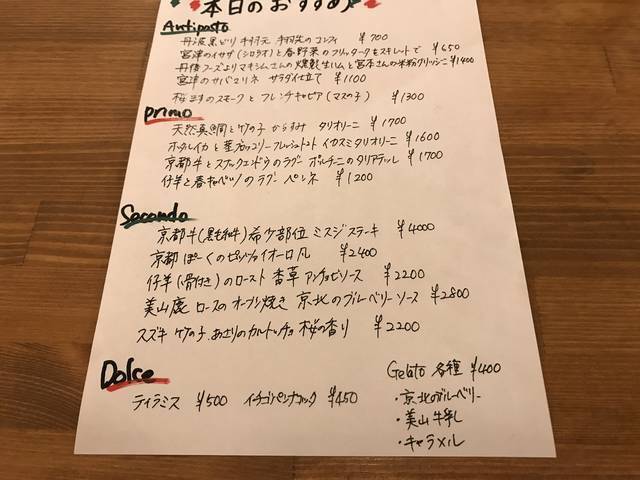 本日のおすすめ
Antipasto
丹波黒どり 手羽元 手羽先のコンフィ ¥700
宮津のイサザ(シロウオ)と春野菜のフリッターをスキレットで ¥650
丹後フーズよりマキシムさんの燻製生ハムと宮本さんの米粉グリッシーニ ¥1400
宮津のサバマリネ サラダ仕立て ¥1100
桜ますのスモークと フレンチキャビア(マスの子) ¥1300
Primo
天然真鯛と竹の子 からすみ タリオリーニ ¥1700
ホタルイカと菜花 フレッシュトマト イカスミタリオリーニ ¥1600
京都牛とスナックエンドウのラグー ポルチーニのタリアテッレ ¥1700
仔羊と春キャベツのラグー ペンネ ¥1200
Secondo
京都牛(黒毛和牛)希少部位 ミスジステーキ ¥4000
京都 ぽーくのピッツァイオーロ風 ¥2400
仔羊(骨付き)のロースト 香草 アンチョビソース ¥2200
美山鹿 ロースのオーブン焼き 京北のブルーベリーソース ¥2800
スズキ 竹の子 あさりのカルトッチョ 桜の香り ¥2200
Dolce
ティラミス ¥500 イチゴパンナコッタ ¥450
Gelato 各種 ¥400
・京北のブルーベリー
・美山牛乳
・キャラメル